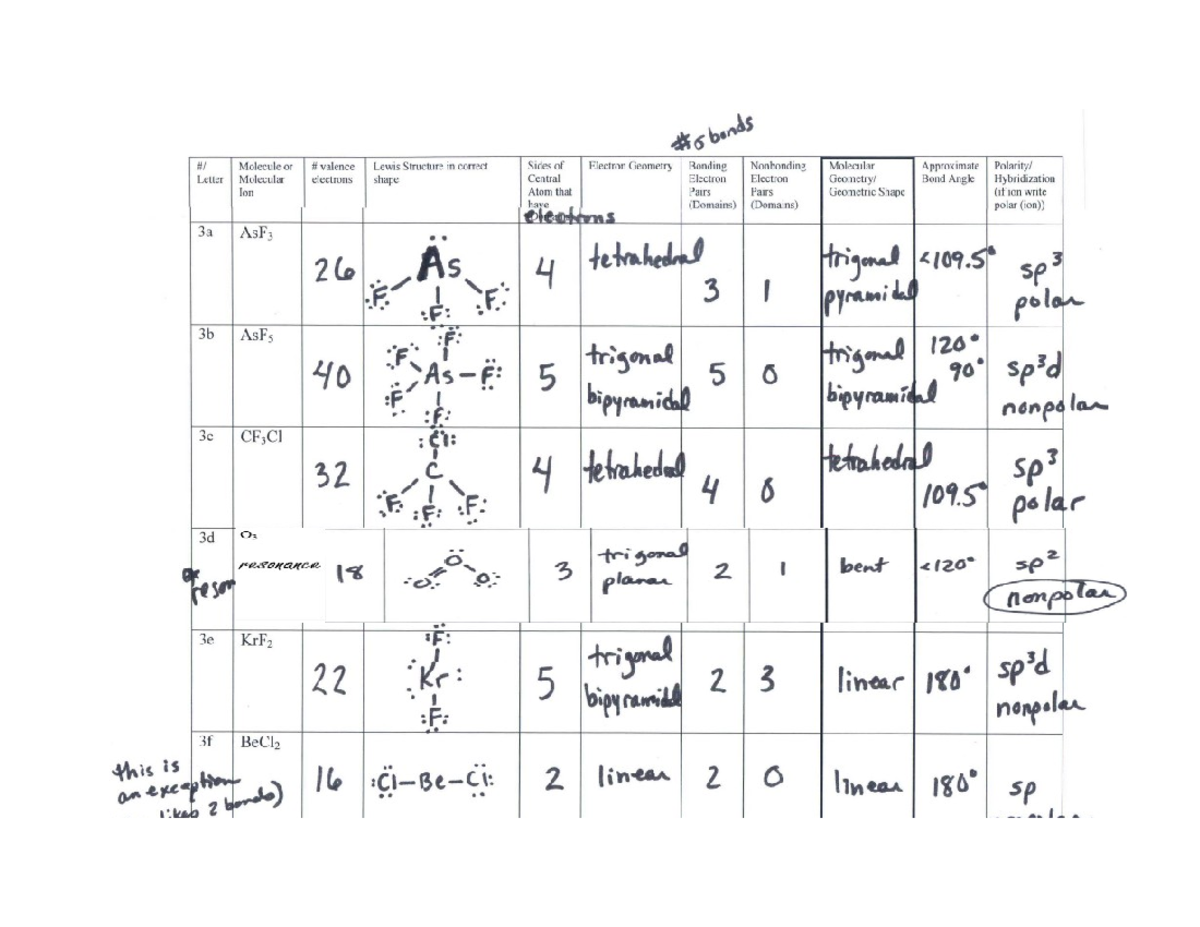 #σ bonds
#/ Letter	Molecule or Molecular Ion	# valence electrons	Lewis Structure in correct shape	Sides of Central Atom that have electrons	Electron Geometry	Bonding Electron Pairs (Domains)	Nonbonding Electron Pairs (Domains)	Molecular Geometry/ Geometric Shape	Approximate Bond Angle	Polarity/ Hybridization (if ion write polar (ion))
3a	AsF3	26	As F F F	4	tetrahedral	3	1	trigonal pyramidal	<109.5°	sp3 polar
3b	AsF5	40	F F As–F F F	5	trigonal bipyramidal	5	0	trigonal bipyramidal	120° 90°	sp3d nonpolar
3c	CF3Cl	32	Cl C F F F	4	tetrahedral	4	0	tetrahedral	109.5°	sp3 polar
3d	O3 resonance	18	O O O	3	trigonal planar	2	1	bent	<120°	sp2 nonpolar
reson
3e	KrF2	22	F Kr F	5	trigonal bipyramidal	2	3	linear	180°	sp3d nonpolar
3f	BeCl2	16	Cl–Be–Cl	2	linear	2	0	linear	180°	sp
this is
an exception
likes 2 bonds)